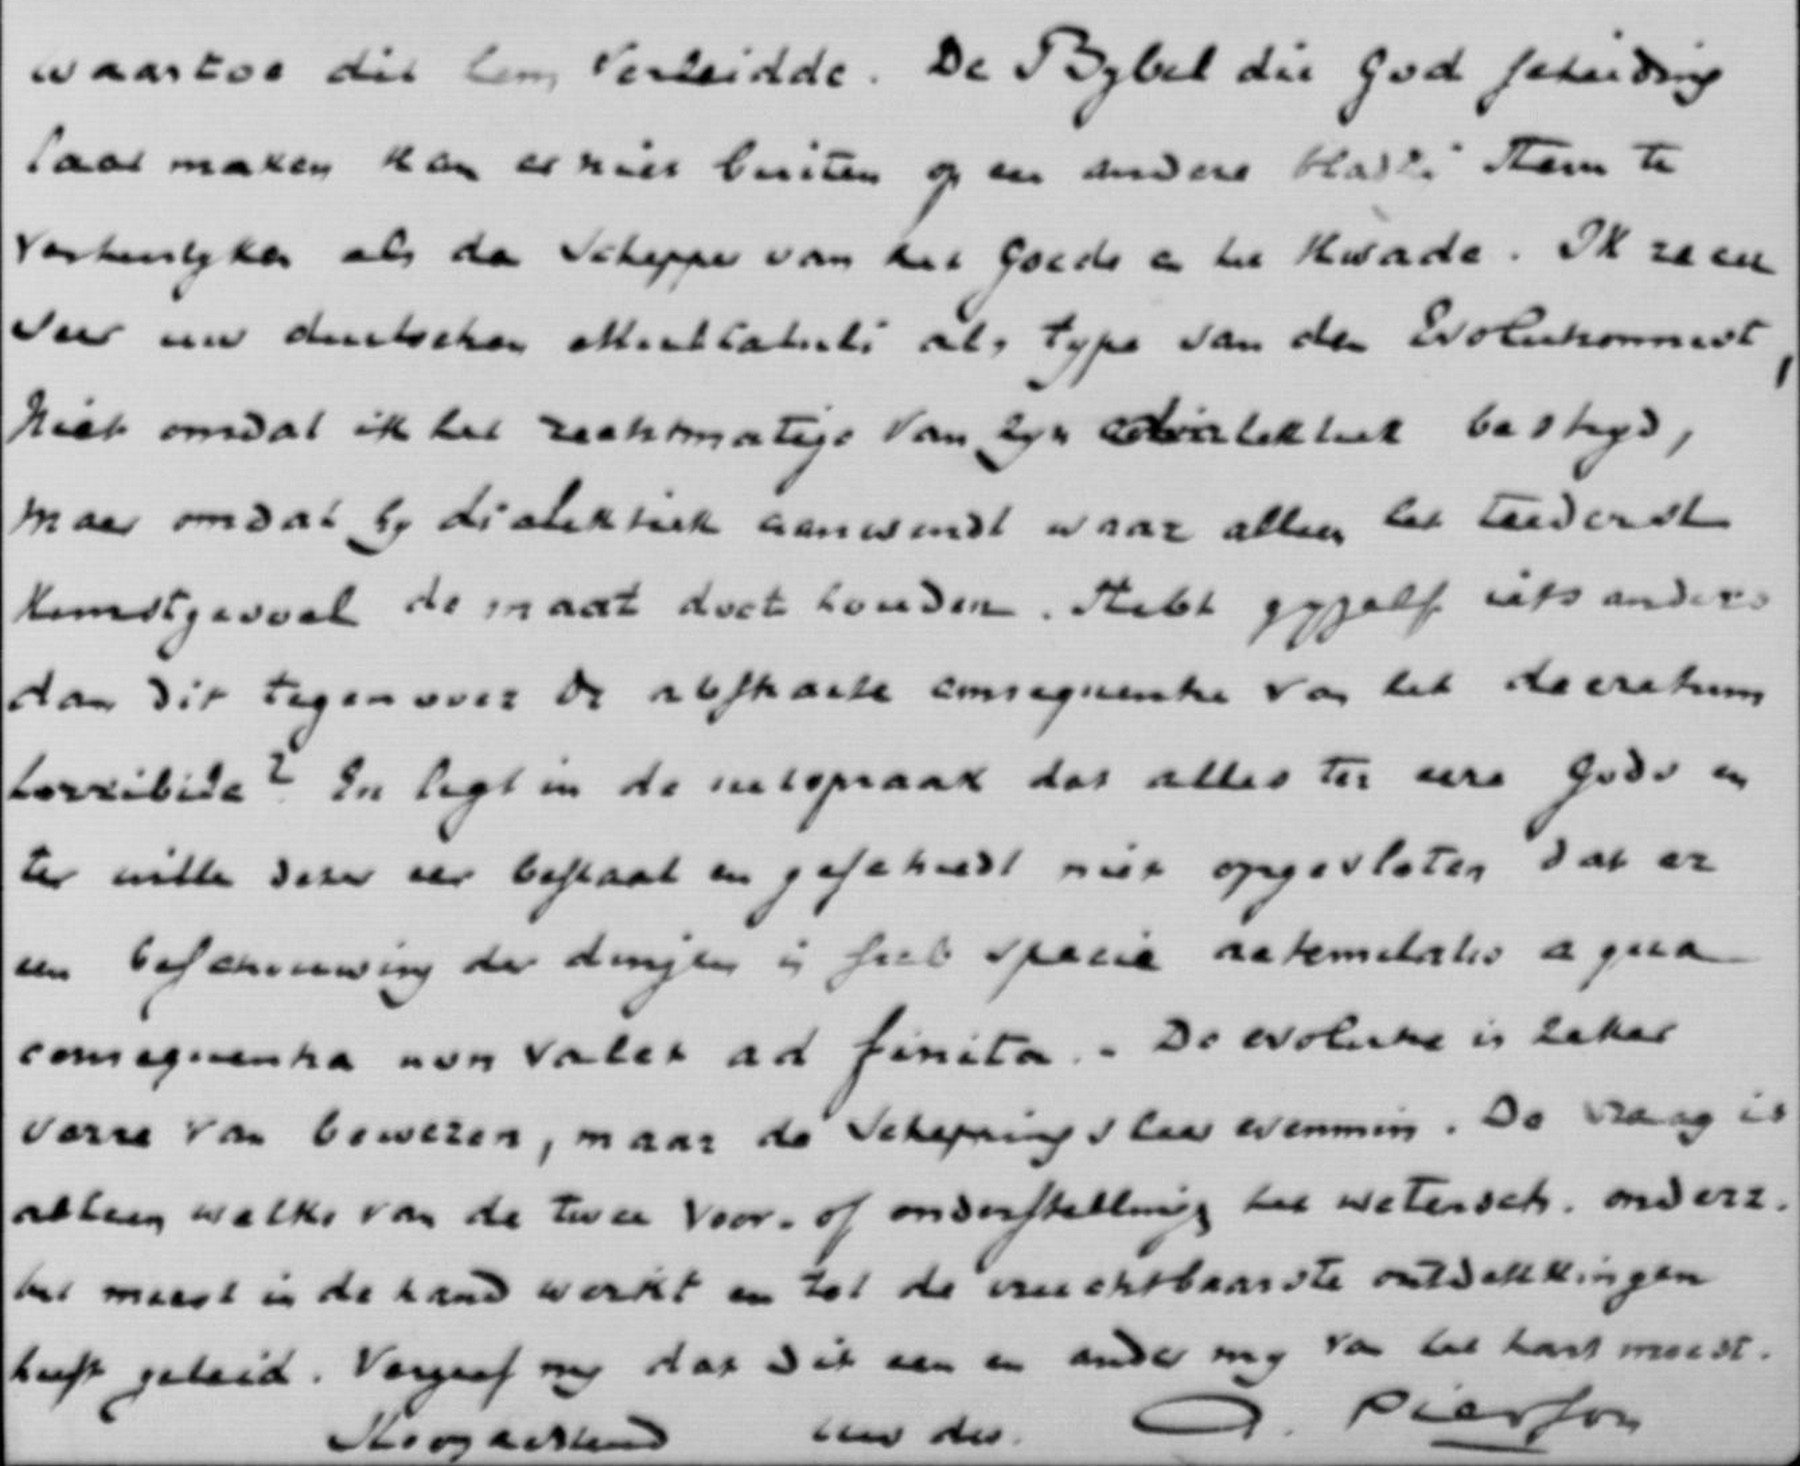 waartoe dit hem verleidde. De Bybel die God scheiding
laat maken kan er niet buiten op een andere bladz. Hem te
verheerlyken als de Schepper van het Goede en het Kwade. Ik zie een
uw duitschen Multatuli als type van den Evolutionnist,
Niet omdat ik het rechtmatige van zyn dialektiek bestryd,
maar omdat hy dialektiek aanwendt waar alleen het teederst
Kunstgevoel de maat doet houden. Hebt gyzelf iets anders
dan dit tegenover de abstracte consequentie van het decretum
horribile? En ligt in de uitspraak dat alles ter eere Gods en
ter wille dezer eer bestaat en geschiedt niet opgesloten dat er
een beschouwing der dingen is sub specie aeternitatis a qua
consequentia non valet ad finita. - De evolutie is zeker
verre van bewezen, maar de Scheppingsleer evenmin. De vraag is
alleen welke van de twee voor- of onderstelling het wetensch. onderz.
het meest in de hand werkt en tot de vruchtbaarste ontdekkingen
heeft geleid. Vergeef my dat dit een en ander my van het hart moest.
Hoogachtend uw dv. A. Pierson